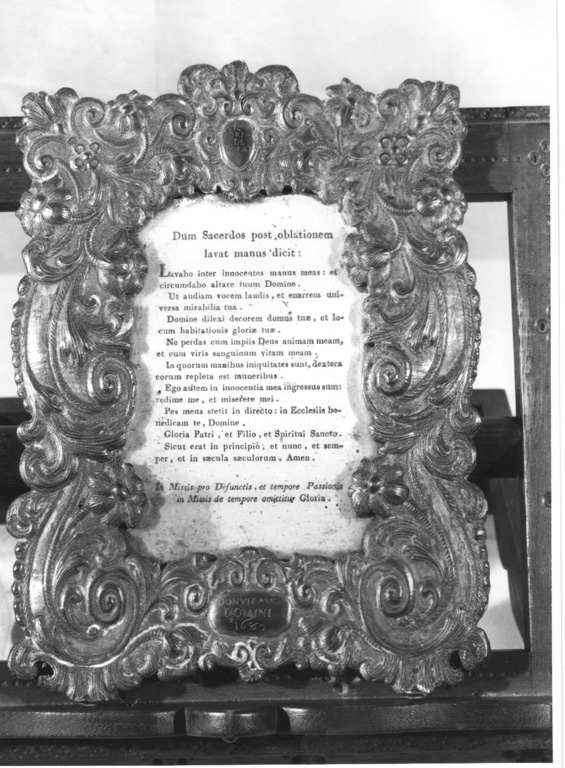 Dum Sacerdos post oblationem
lavat manus dicit :
Lavabo inter innocentes manus meas : et
circumdabo altare tuum Domine .
Ut audiam vocem laudis , et enarrem uni-
versa mirabilia tua .
Domine dilexi decorem domus tuæ , et lo-
cum habitationis gloriæ tuæ .
Ne perdas cum impiis Deus animam meam,
et cum viris sanguinum vitam meam .
In quorum manibus iniquitates sunt, dextera
eorum repleta est muneribus .
Ego autem in innocentia mea ingressus sum:
redime me , et miserere mei .
Pes meus stetit in directo : in Ecclesiis be-
nedicam te , Domine .
Gloria Patri , et Filio , et Spiritui Sancto .
Sicut erat in principio , et nunc , et sem-
per , et in sæcula sæculorum . Amen .
In Missis pro Defunctis , et tempore Passionis
in Missis de tempore omittitur Gloria .
DOMINI